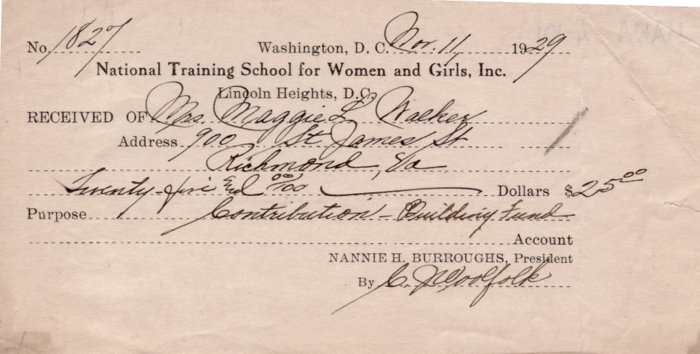 No. 1827 Washington, D. C. Nov. 11, 1929
National Training School for Women and Girls, Inc.
Lincoln Heights, D.C.
RECEIVED OF Mrs. Maggie L. Walker
Address 900 St. James St.
Richmond, Va
Twenty-five and 00/100 Dollars $25.00
Purpose Contribution - Building Fund
Account
NANNIE H. BURROUGHS, President
By C. J. Woolfolk